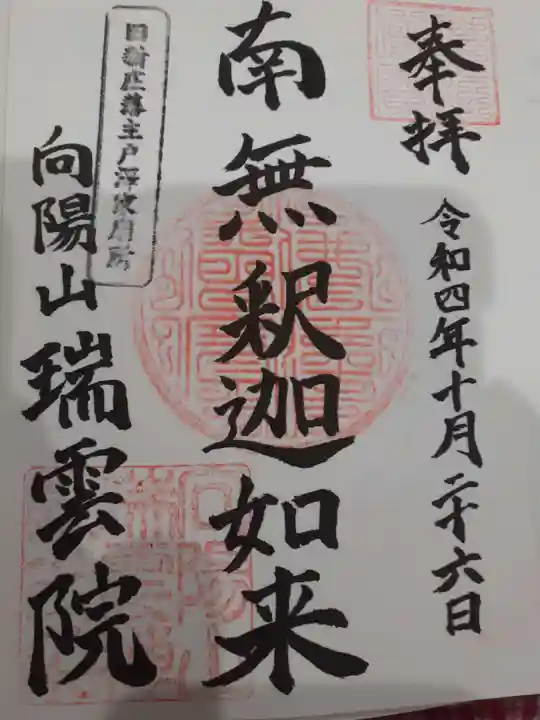 奉拝
令和四年十月二十六日
南無釈迦如来
旧新庄藩主戸澤家廟所
向陽山瑞雲院